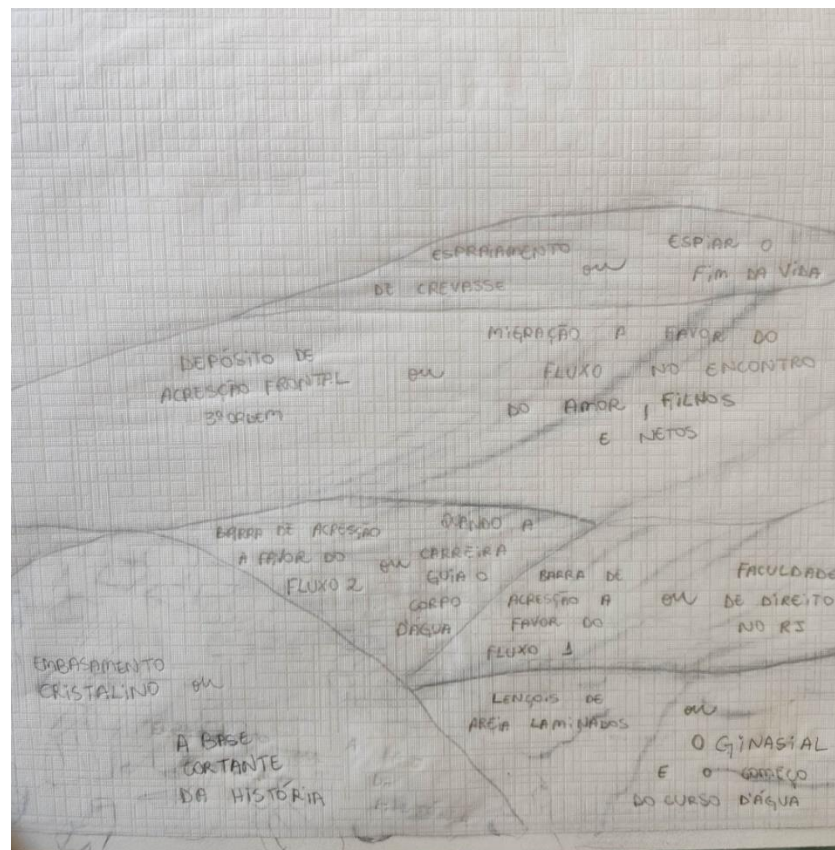 ESPRAIAMENTO
DE CREVASSE
ou
ESPIAR O
FIM DA VIDA
DEPÓSITO DE
ACRESÇÃO FRONTAL
3ª ORDEM
ou
MIGRAÇÃO A FAVOR DO
FLUXO NO ENCONTRO
DO AMOR, FILHOS
E NETOS
BARRA DE ACRESÇÃO
A FAVOR DO
FLUXO 2
ou
QUANDO A
CARREIRA
GUIA O
CORPO
DÁGUA
BARRA DE
ACRESÇÃO A
FAVOR DO
FLUXO 1
ou
FACULDADE
DE DIREITO
NO RJ
EMBASAMENTO
CRISTALINO ou
A BASE
CORTANTE
DA HISTÓRIA
LENÇÓIS DE
AREIA LAMINADOS
ou
O GINASIAL
E O COMEÇO
DO CURSO D'ÁGUA